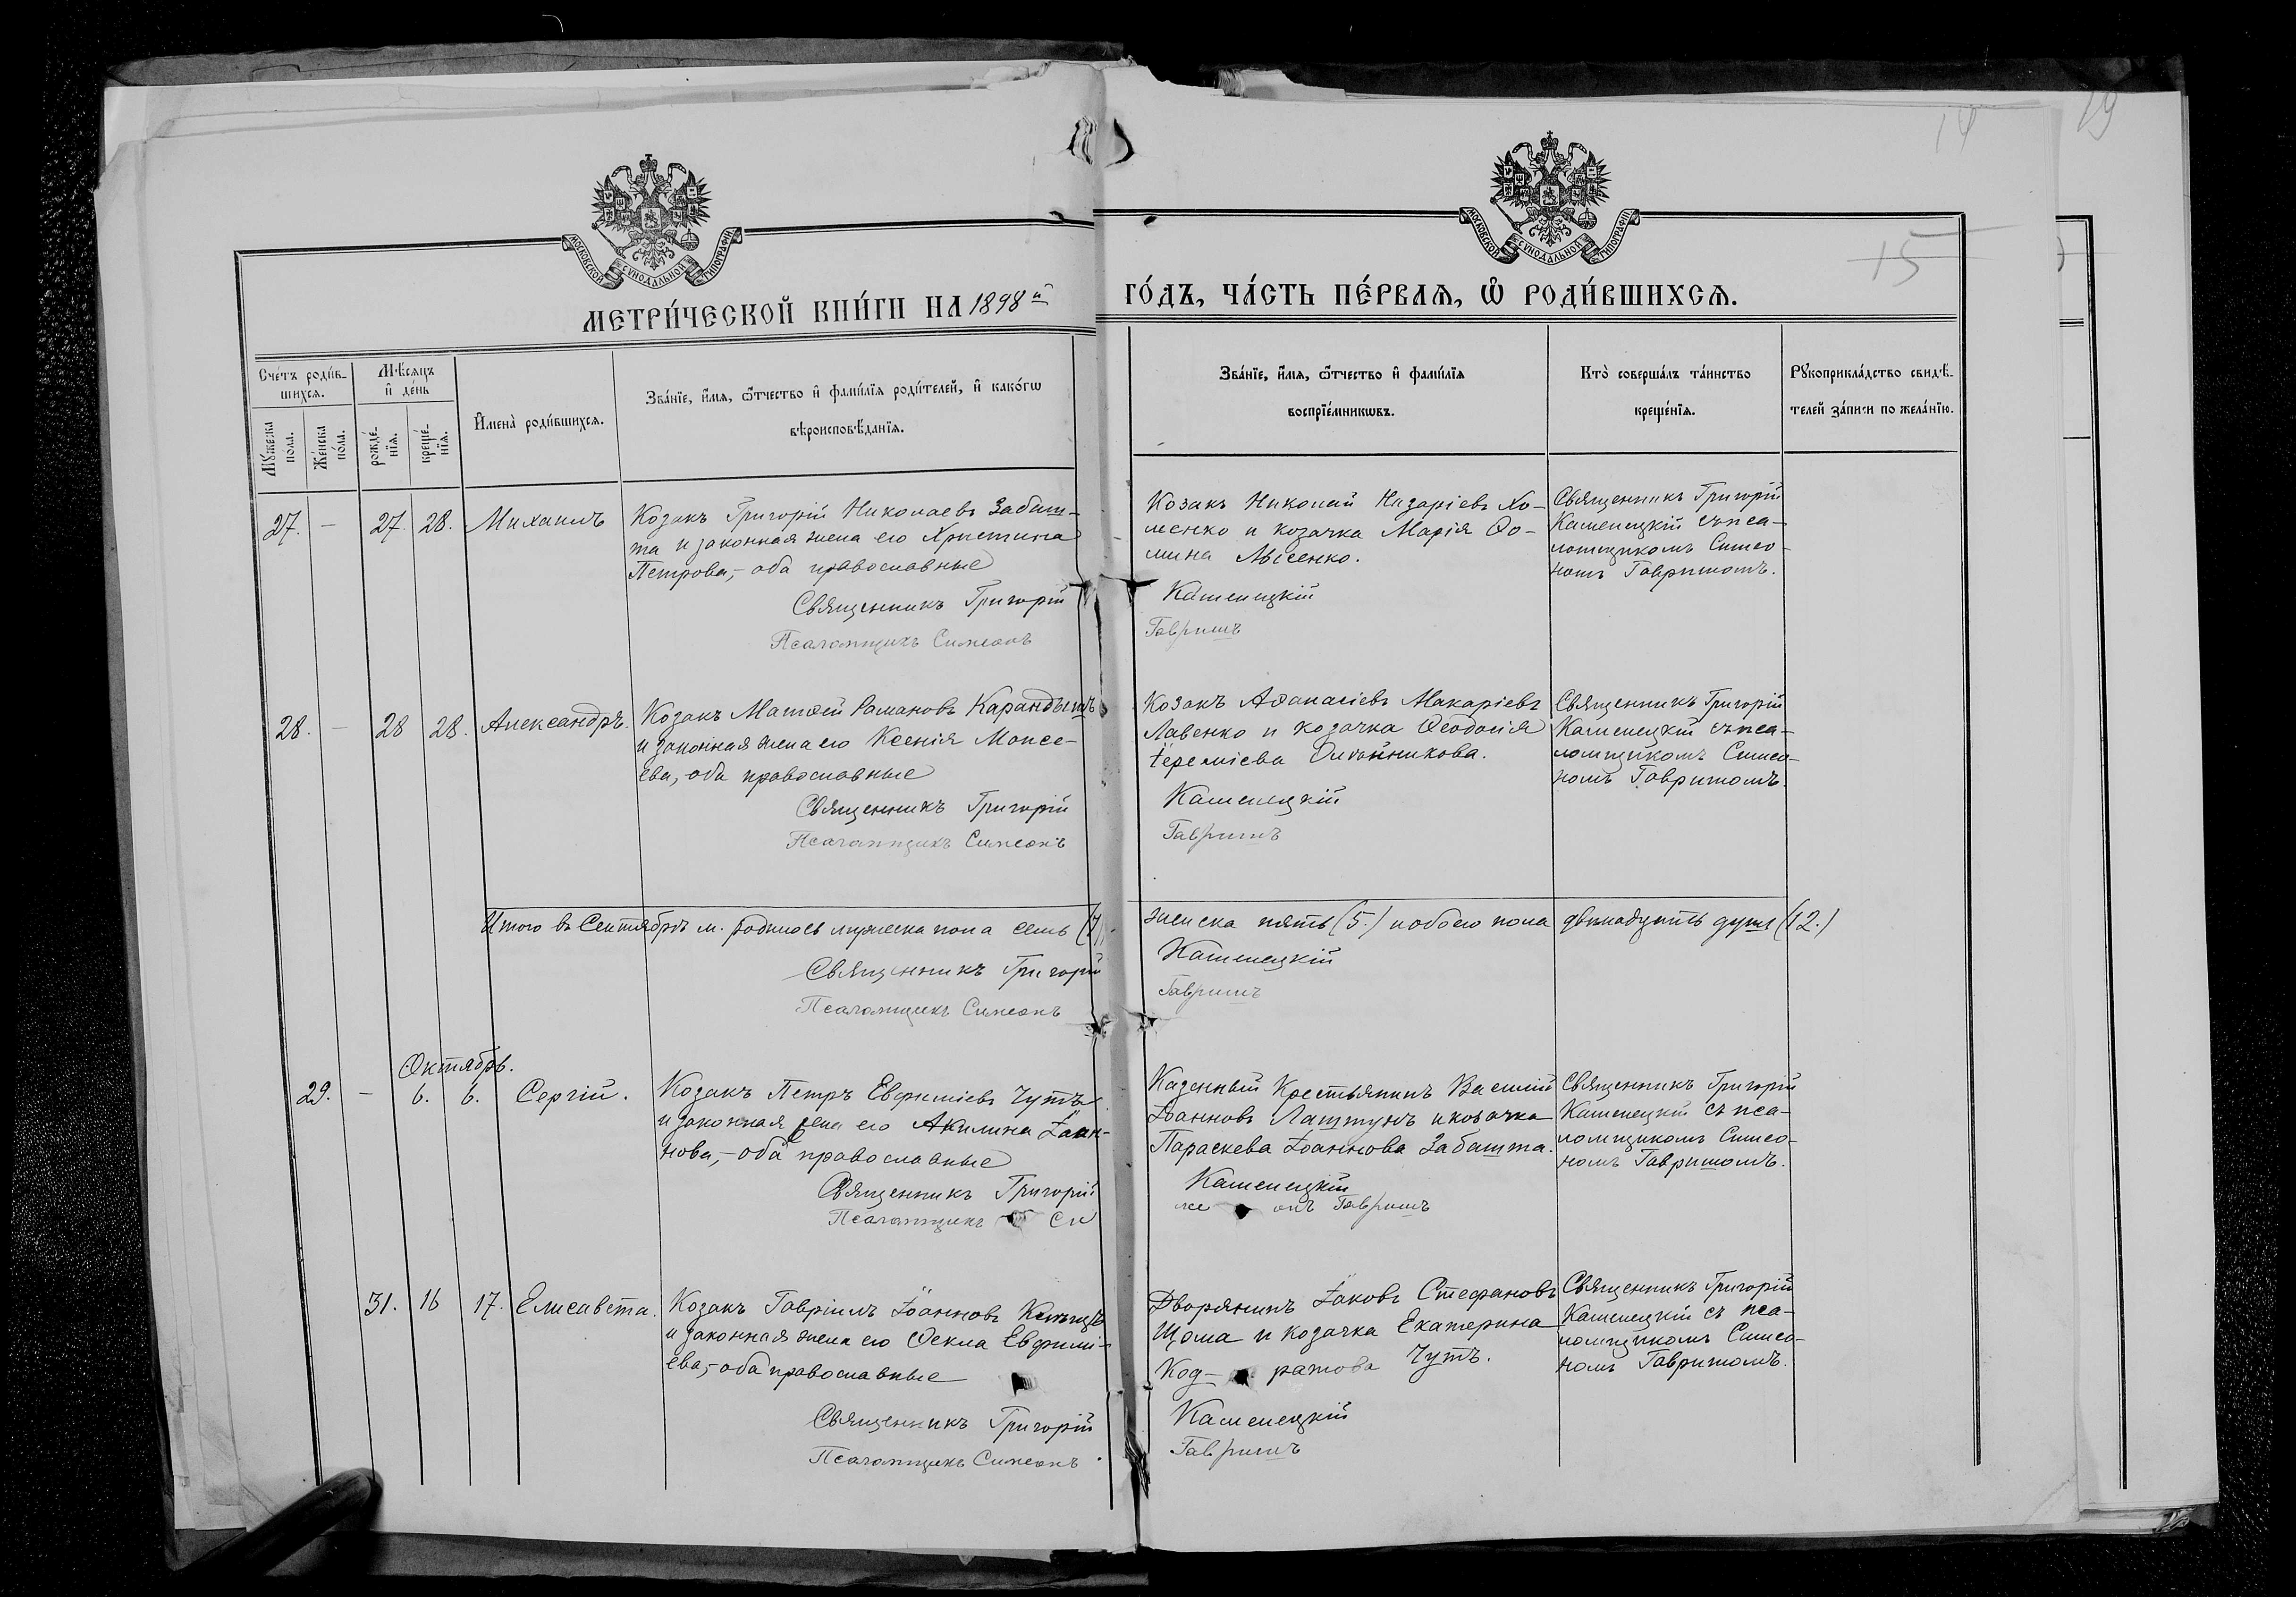 14
19
МОСКОВСКОЙ СѴНОДАЛЬНОЙ ТИПОГРАФІИ
МОСКОВСКОЙ СѴНОДАЛЬНОЙ ТИПОГРАФІИ
15
МЕТРИ́ЧЕСКОЙ КНИ́ГИ НА 1898 й
ГО́ДЪ, ЧА́СТЬ ПЕ́РВАѦ, Ѽ РОДИ́ВШИХСѦ.
Сче́тъ роди́в-
шихсѧ.
Мѣ́сѧцъ
и҆ де́нь
Мꙋ́жеска
по́ла.
Же́нска
по́ла.
рожде́-
нїѧ.
креще́-
нїѧ.
И҆мена̀ роди́вшихсѧ.
Зва́нїе, и҆́мѧ, ѻ҆́тчество и҆ фами́лїѧ роди́телей, и҆ како́гѡ
вѣроисповѣ́данїѧ.
Зва́нїе, и҆́мѧ, ѻ҆́тчество и҆ фами́лїѧ
воспрїе́мникѡвъ.
Кто̀ соверша́лъ та́инство
креще́нїѧ.
Рꙋкоприкла́дство свидѣ́-
телей за́писи по жела́нїю.
27. — 27. 28. Михаилъ
Козакъ Григорій Николаевъ Забаш-
та и законная жена его Христина
Петрова,- оба православные
Священникъ Григорій
Псаломщикъ Симеонъ
Козакъ Николай Назаріевъ Хо-
менко и козачка Марія Ѳо-
мина Лысенко.
Каменецкій
Гавришъ
Священникъ Григорій
Каменецкій съ пса-
ломщикомъ Симео-
номъ Гавришомъ.
28. — 28 28. Александръ.
Козакъ Матѳей Романовъ Карандышъ
и законная жена его Ксенія Моисе-
ева,- оба православные
Священникъ Григорій
Псаломщикъ Симеонъ
Козакъ Аѳанасіевъ Макаріевъ
Лавенко и козачка Ѳеодосія
Іереміева Олейникова.
Каменецкій
Гавришъ
Священникъ Григорій
Каменецкій съ пса-
ломщикомъ Симео-
номъ Гавришомъ.
Итого въ Сентябрѣ м. родилось мужеска пола семь (7),
женска пять (5.) и обоего пола двенадцать душъ (12.)
Священникъ Григорій
Псаломщикъ Симеонъ
Каменецкій
Гавришъ
Октябрь.
29. — 6. 6. Сергій.
Козакъ Петръ Евфиміевъ Чутъ
и законная жена его Акилина Іоан-
нова,- оба православные
Священникъ Григорій
Псаломщикъ Си
Казенный Крестьянинъ Василій
Іоанновъ Лаштунъ и козачка
Параскева Іоаннова Забашта.
Каменецкій
ме онъ Гавришъ
Священникъ Григорій
Каменецкій съ пса-
ломщикомъ Симео-
номъ Гавришомъ.
31. 16 17. Елисавета.
Козакъ Гавріилъ Іоанновъ
и законная жена его Ѳекла Евфимі-
ева,- оба православные
Священникъ Григорій
Псаломщикъ Симеонъ
Дворянинъ Іаковъ Стефановъ
Щома и козачка Екатерина
Код- ратова Чутъ.
Каменецкій
Гавришъ
Священникъ Григорій
Каменецкій съ пса-
ломщикомъ Симео-
номъ Гавришомъ.